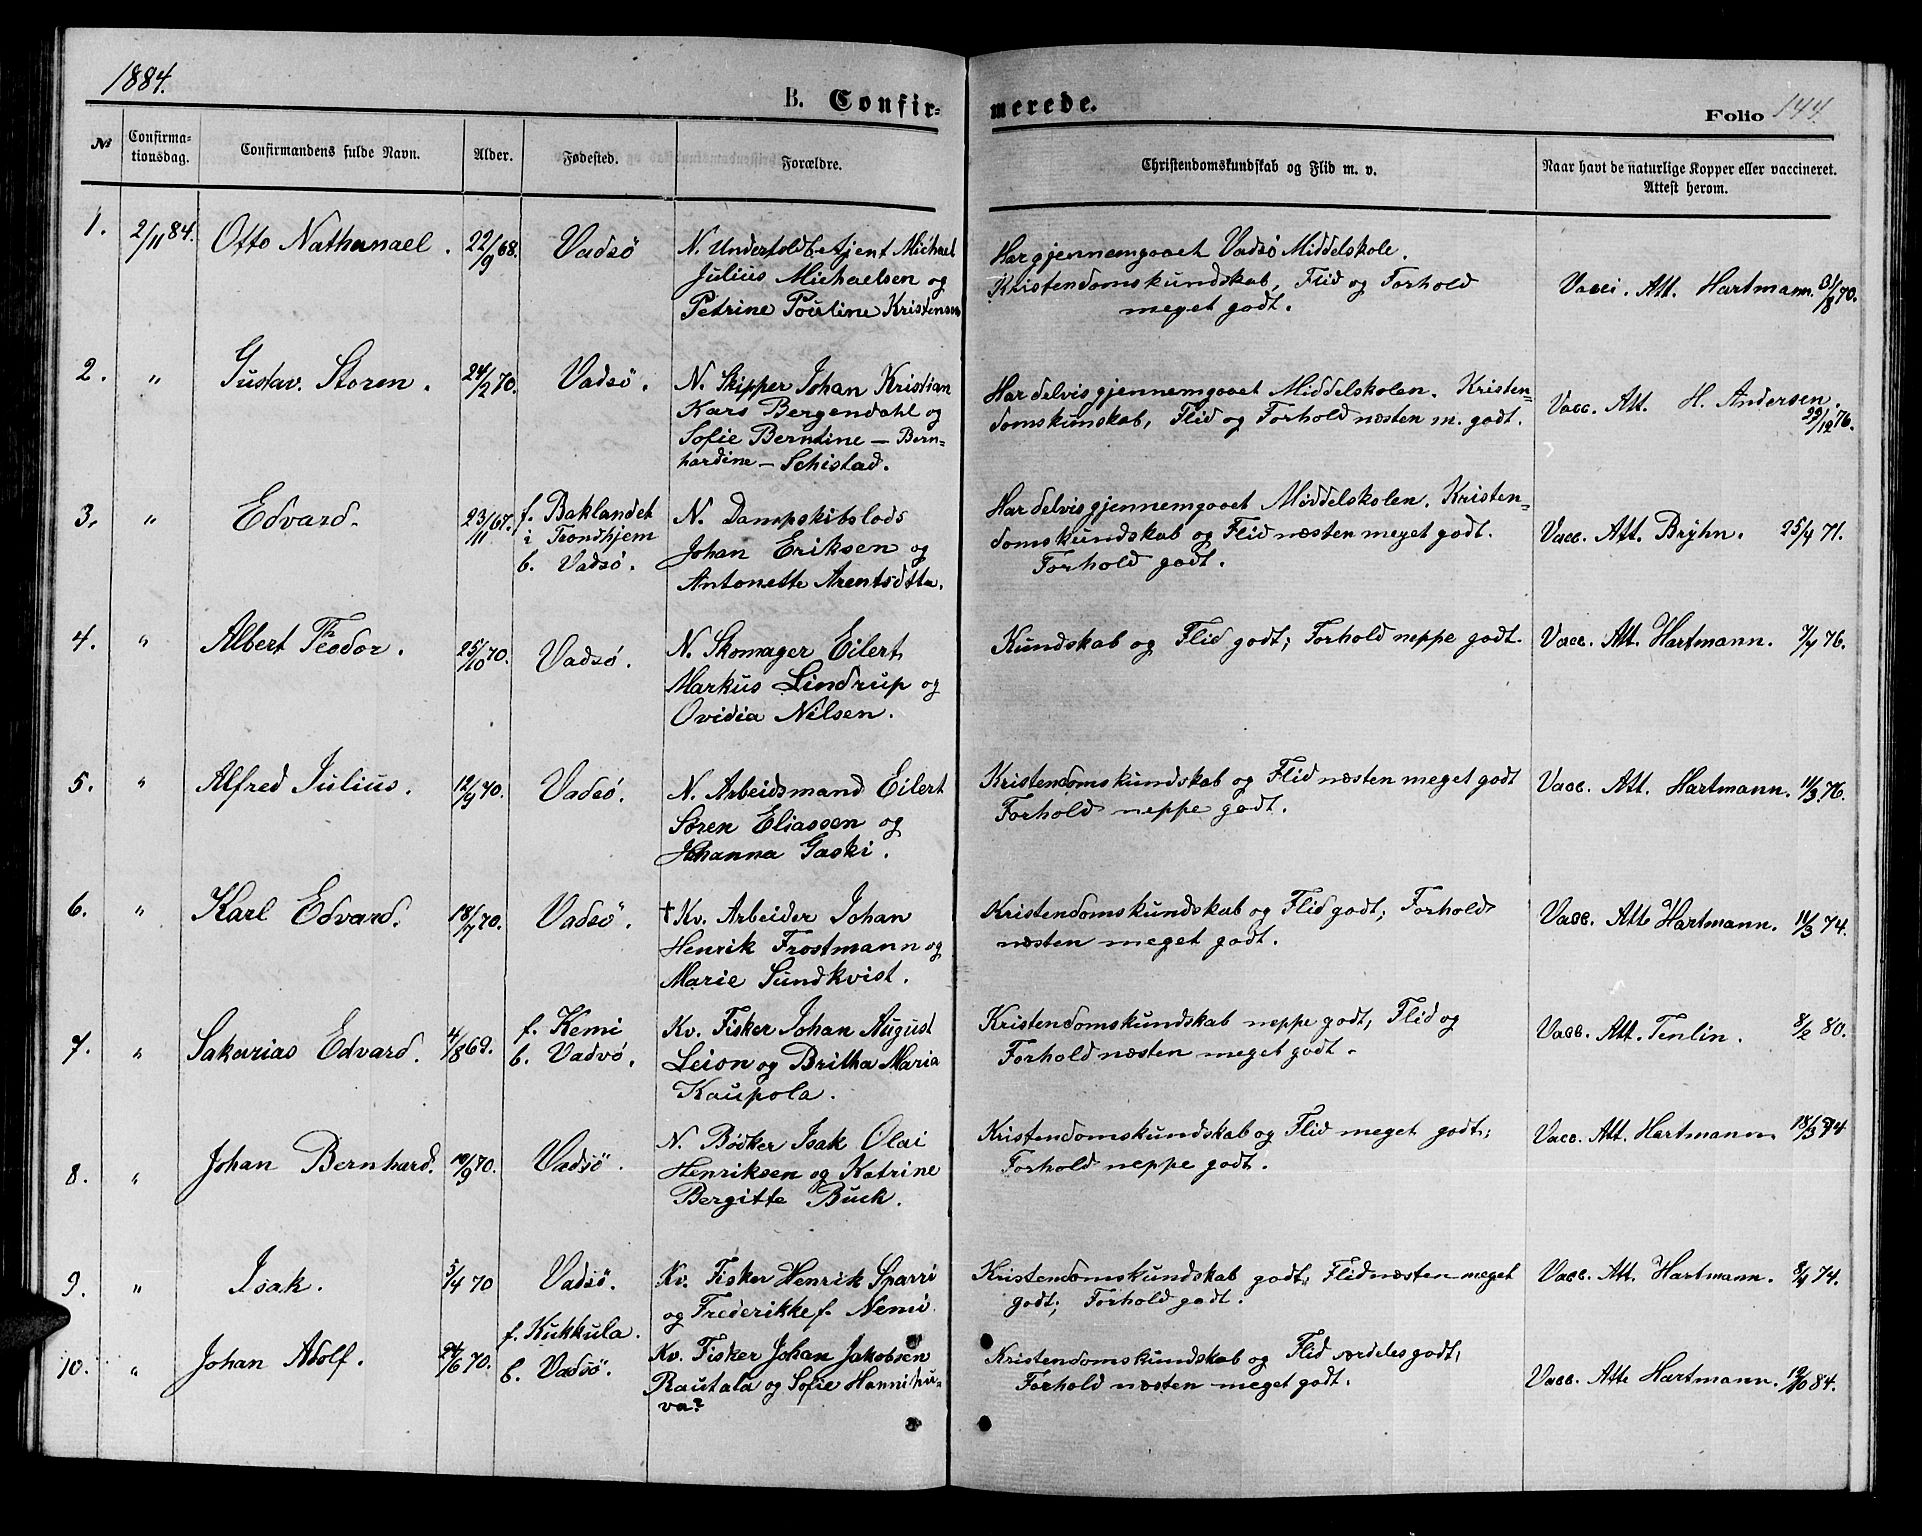 1884.
B. Confir-
merede.
Folio 144.
No
Confirma-
tionsdag.
Confirmandens fulde Navn.
Alder.
Fødested.
Forældre.
Christendomskundskab og Flid m. v.
Naar havt de naturlige Kopper eller vaccineret.
Attest herom.
1. 2/11 84. Otto Nathanael. 22/9 68. Vadsö
N. Undertoldbetjent Michael
Julius Michaelsen og
Petrine Pouline Kristensen
Har gjennemgaaet Vadsö Middelskole.
Kristendomskundskab, Flid og Forhold
meget godt.
Vacci. Att. Hartmann. 31/8 70.
2. " Gustav Storm. 24/2 70. Vadsö.
N. Skipper Johan Kristian
Kars Bergendahl og
Sofie Berntine – Bern-
hardine – Schistad.
Har delvis gjennemgaaet Middelskolen. Kristen-
domskunskab, Flid og Forhold næsten m. godt.
Vacc. Att. H. Andersen.
22/12 76.
3. " Edvard. 23/11 67.
f. Baklandet
i Trondhjem
b. Vadsö.
N. Dampskibslods
Johan Eriksen og
Antonette Arentsdtta.
Har delvis gjennemgaaet Middelskolen. Kristen-
domskundskab og Flid næsten meget godt.
Forhold godt.
Vacc. Att. Bryhn. 25/4 71.
4. " Albert Teodor. 25/10 70. Vadsö.
N. Skomager Eilert
Markus Lindrup og
Ovidia Nilsen.
Kundskab og Flid godt; Forhold neppe godt.
Vacc. Att. Hartmann. 7/4 76.
5. " Alfred Julius. 12/9 70. Vadsö.
N. Arbeidsmand Eilert
Sören Eliassen og
Johanna Gaski.
Kristendomskundskab og Flid næsten meget godt
Forhold neppe godt.
Vacc. Att. Hartmann. 11/3 76.
6. " Karl Edvard. 18/7 70. Vadsö.
† Kv. Arbeider Johan
Henrik Frostmann og
Marie Sundkvist.
Kristendomskundskab og Flid godt; Forhold
næsten meget godt.
Vacc. Att. Hartmann. 11/3 74.
7. " Sakarias Edvard. 4/8 69.
f. Kemi
b. Vadsö.
Kv. Fisker Johan August
Leion og Britha Maria
Kaupola.
Kristendomskundskab neppe godt, Flid og
Forhold næsten meget godt.
Vacc. Att. Tenlin. 8/2 80.
8. " Johan Bernhard. 10/9 70. Vadsö.
N. Bödker Isak Olai
Henriksen og Katrine
Bergitte Buck.
Kristendomskundskab og Flid meget godt;
Forhold neppe godt.
Vacc. Att. Hartmann 18/3 74.
9. " Isak. 5/4 70 Vadsö.
Kv. Fisker Henrik Sparri
og Frederikke f. Nemi.
Kristendomskundskab godt; Flid næsten meget
godt; Forhold godt.
Vacc. Att. Hartmann. 8/4 74.
10. " Johan Adolf. 24/6 70.
f. Kukkula.
b. Vadsö.
Kv. Fisker Johan Jakobsen
Rautala og Sofie Hannihu-
va?
Kristendomskundskab og Flid særdeles godt;
Forhold næsten meget godt.
Vacc. Att. Hartmann. 12/10 84.